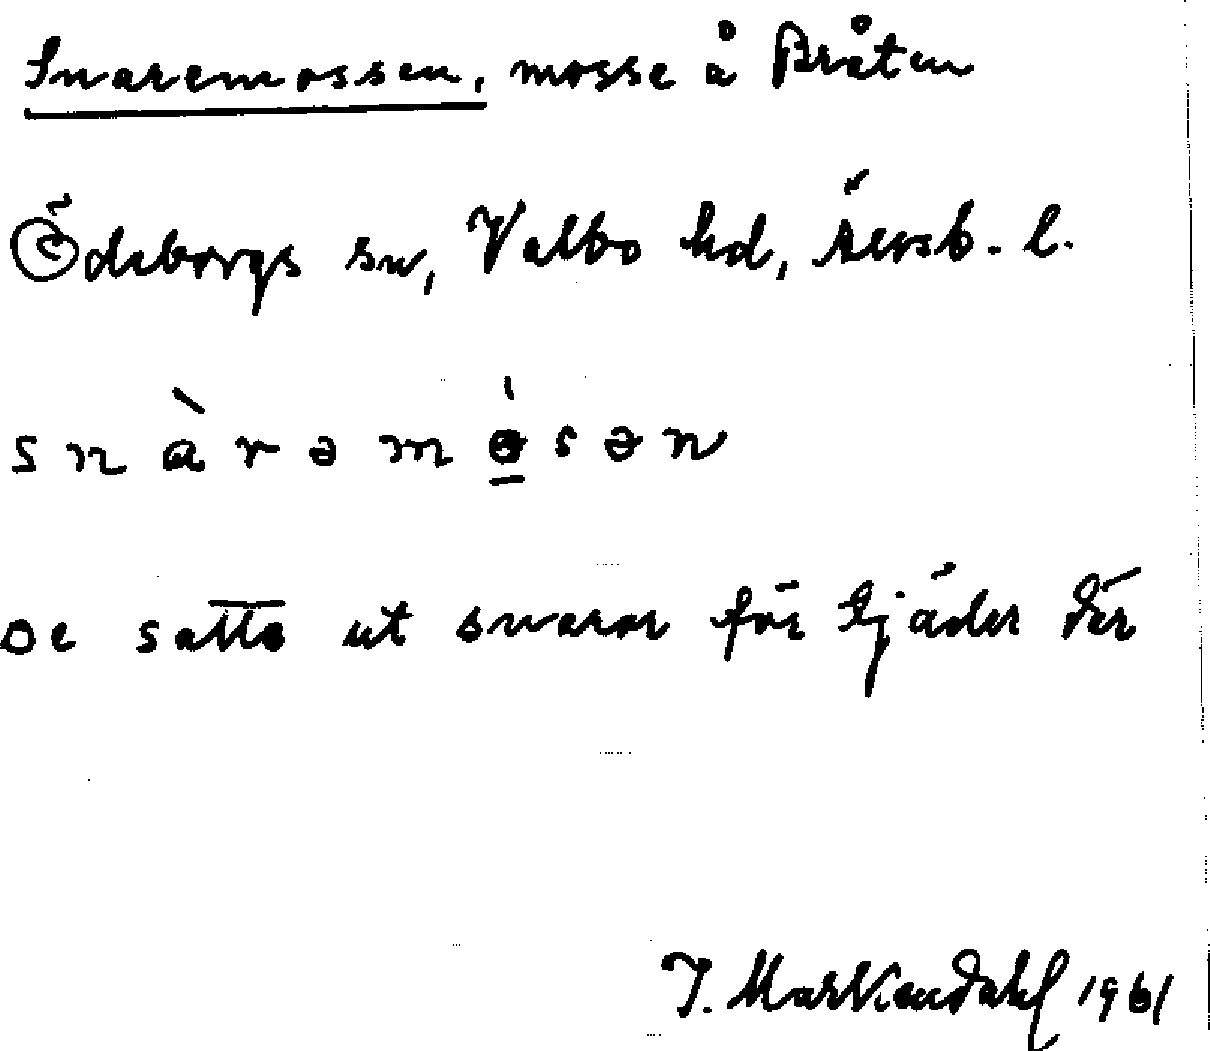 Snaremossen, mosse å Bråten
Ödeborgs sn, Valbo hd, Älvsb. l.
snàrəmòsən
De satte ut snaror för tjäder där
J. Markendahl 1961